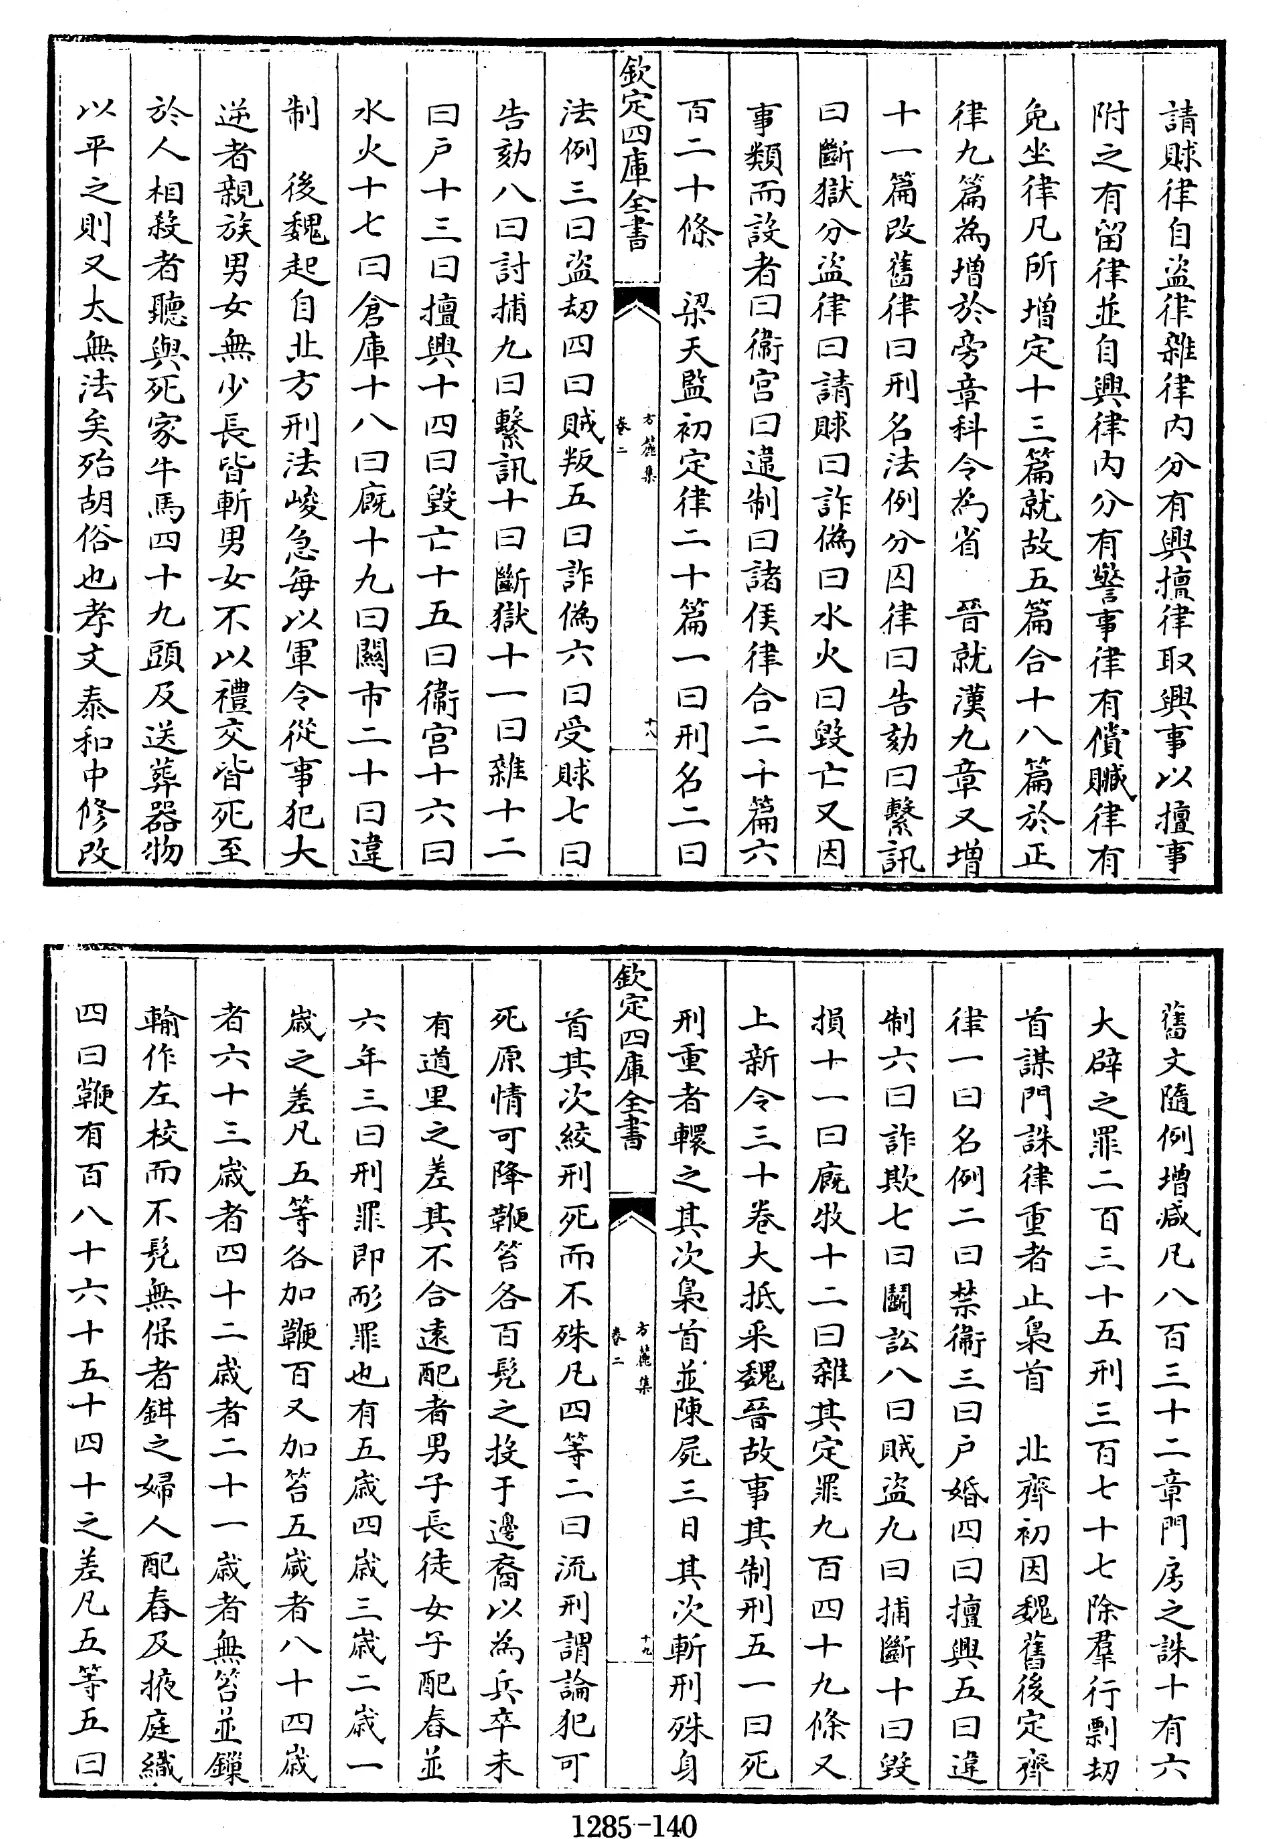 請賕律自盜律雜律内分有興擅律取興事以擅事
附之有留律並自興律内分有警事律有償贓律有
免坐律凡所增定十三篇就故五篇合十八篇於正
律九篇為增於旁章科令為省　晉就漢九章又增
十一篇改舊律曰刑名法例分囚律曰告劾曰繫訊
曰斷獄分盜律曰請賕曰詐偽曰水火曰毀亡又因
事類而設者曰衞宫曰違制曰諸侯律合二十篇六
百二十條　梁天監初定律二十篇一曰刑名二曰
欽定四庫全書
方麓集
卷二
十八
法例三曰盜刼四曰賊叛五曰詐偽六曰受賕七曰
告劾八曰討捕九曰繫訊十曰斷獄十一曰雜十二
曰戶十三曰擅興十四曰毀亡十五曰衞宫十六曰
水火十七曰倉庫十八曰廐十九曰關市二十曰違
制　後魏起自北方刑法峻急每以軍令從事犯大
逆者親族男女無少長皆斬男女不以禮交皆死至
於人相殺者聽與死家牛馬四十九頭及送葬器物
以平之則又太無法矣殆胡俗也孝文泰和中修改
舊文隨例增减凡八百三十二章門房之誅十有六
大辟之罪二百三十五刑三百七十七除羣行剽刼
首謀門誅律重者止梟首　北齊初因魏舊後定齊
律一曰名例二曰禁衞三曰戶婚四曰擅興五曰違
制六曰詐欺七曰鬭訟八曰賊盜九曰捕斷十曰毀
損十一曰廐牧十二曰雜其定罪九百四十九條又
上新令三十卷大抵采魏晉故事其制刑五一曰死
刑重者轘之其次梟首並陳屍三日其次斬刑殊身
欽定四庫全書
方麓集
卷二
十九
首其次絞刑死而不殊凡四等二曰流刑謂論犯可
死原情可降鞭笞各百髠之投于邊裔以為兵卒未
有道里之差其不合遠配者男子長徒女子配舂並
六年三曰刑罪即耐罪也有五歲四歲三歲二歲一
歲之差凡五等各加鞭百又加笞五歲者八十四歲
者六十三歲者四十二歲者二十一歲者無笞並鏁
輸作左校而不髠無保者鉗之婦人配舂及掖庭織
四曰鞭有百八十六十五十四十之差凡五等五曰
1285-140